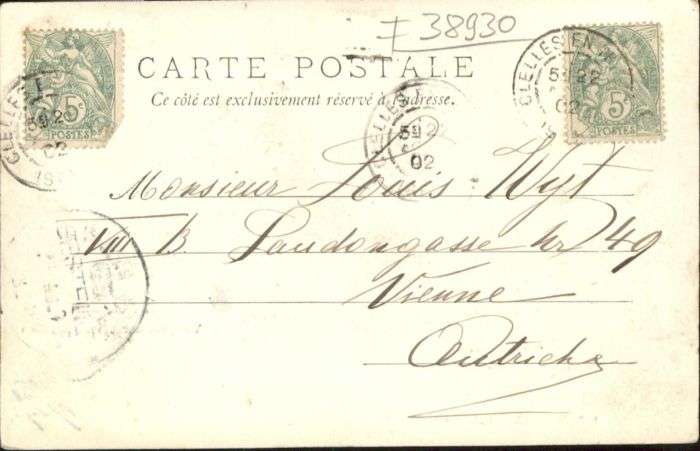 38930
CARTE POSTALE
Ce côté est exclusivement réservé à l'adresse.
5c
POSTES
5c
POSTES
CLELLES
02
CLELLES EN
02
CLELLES
02
Monsieur Louis Wyt
VIII B. Laudongasse nr 49
Vienne
Autriche